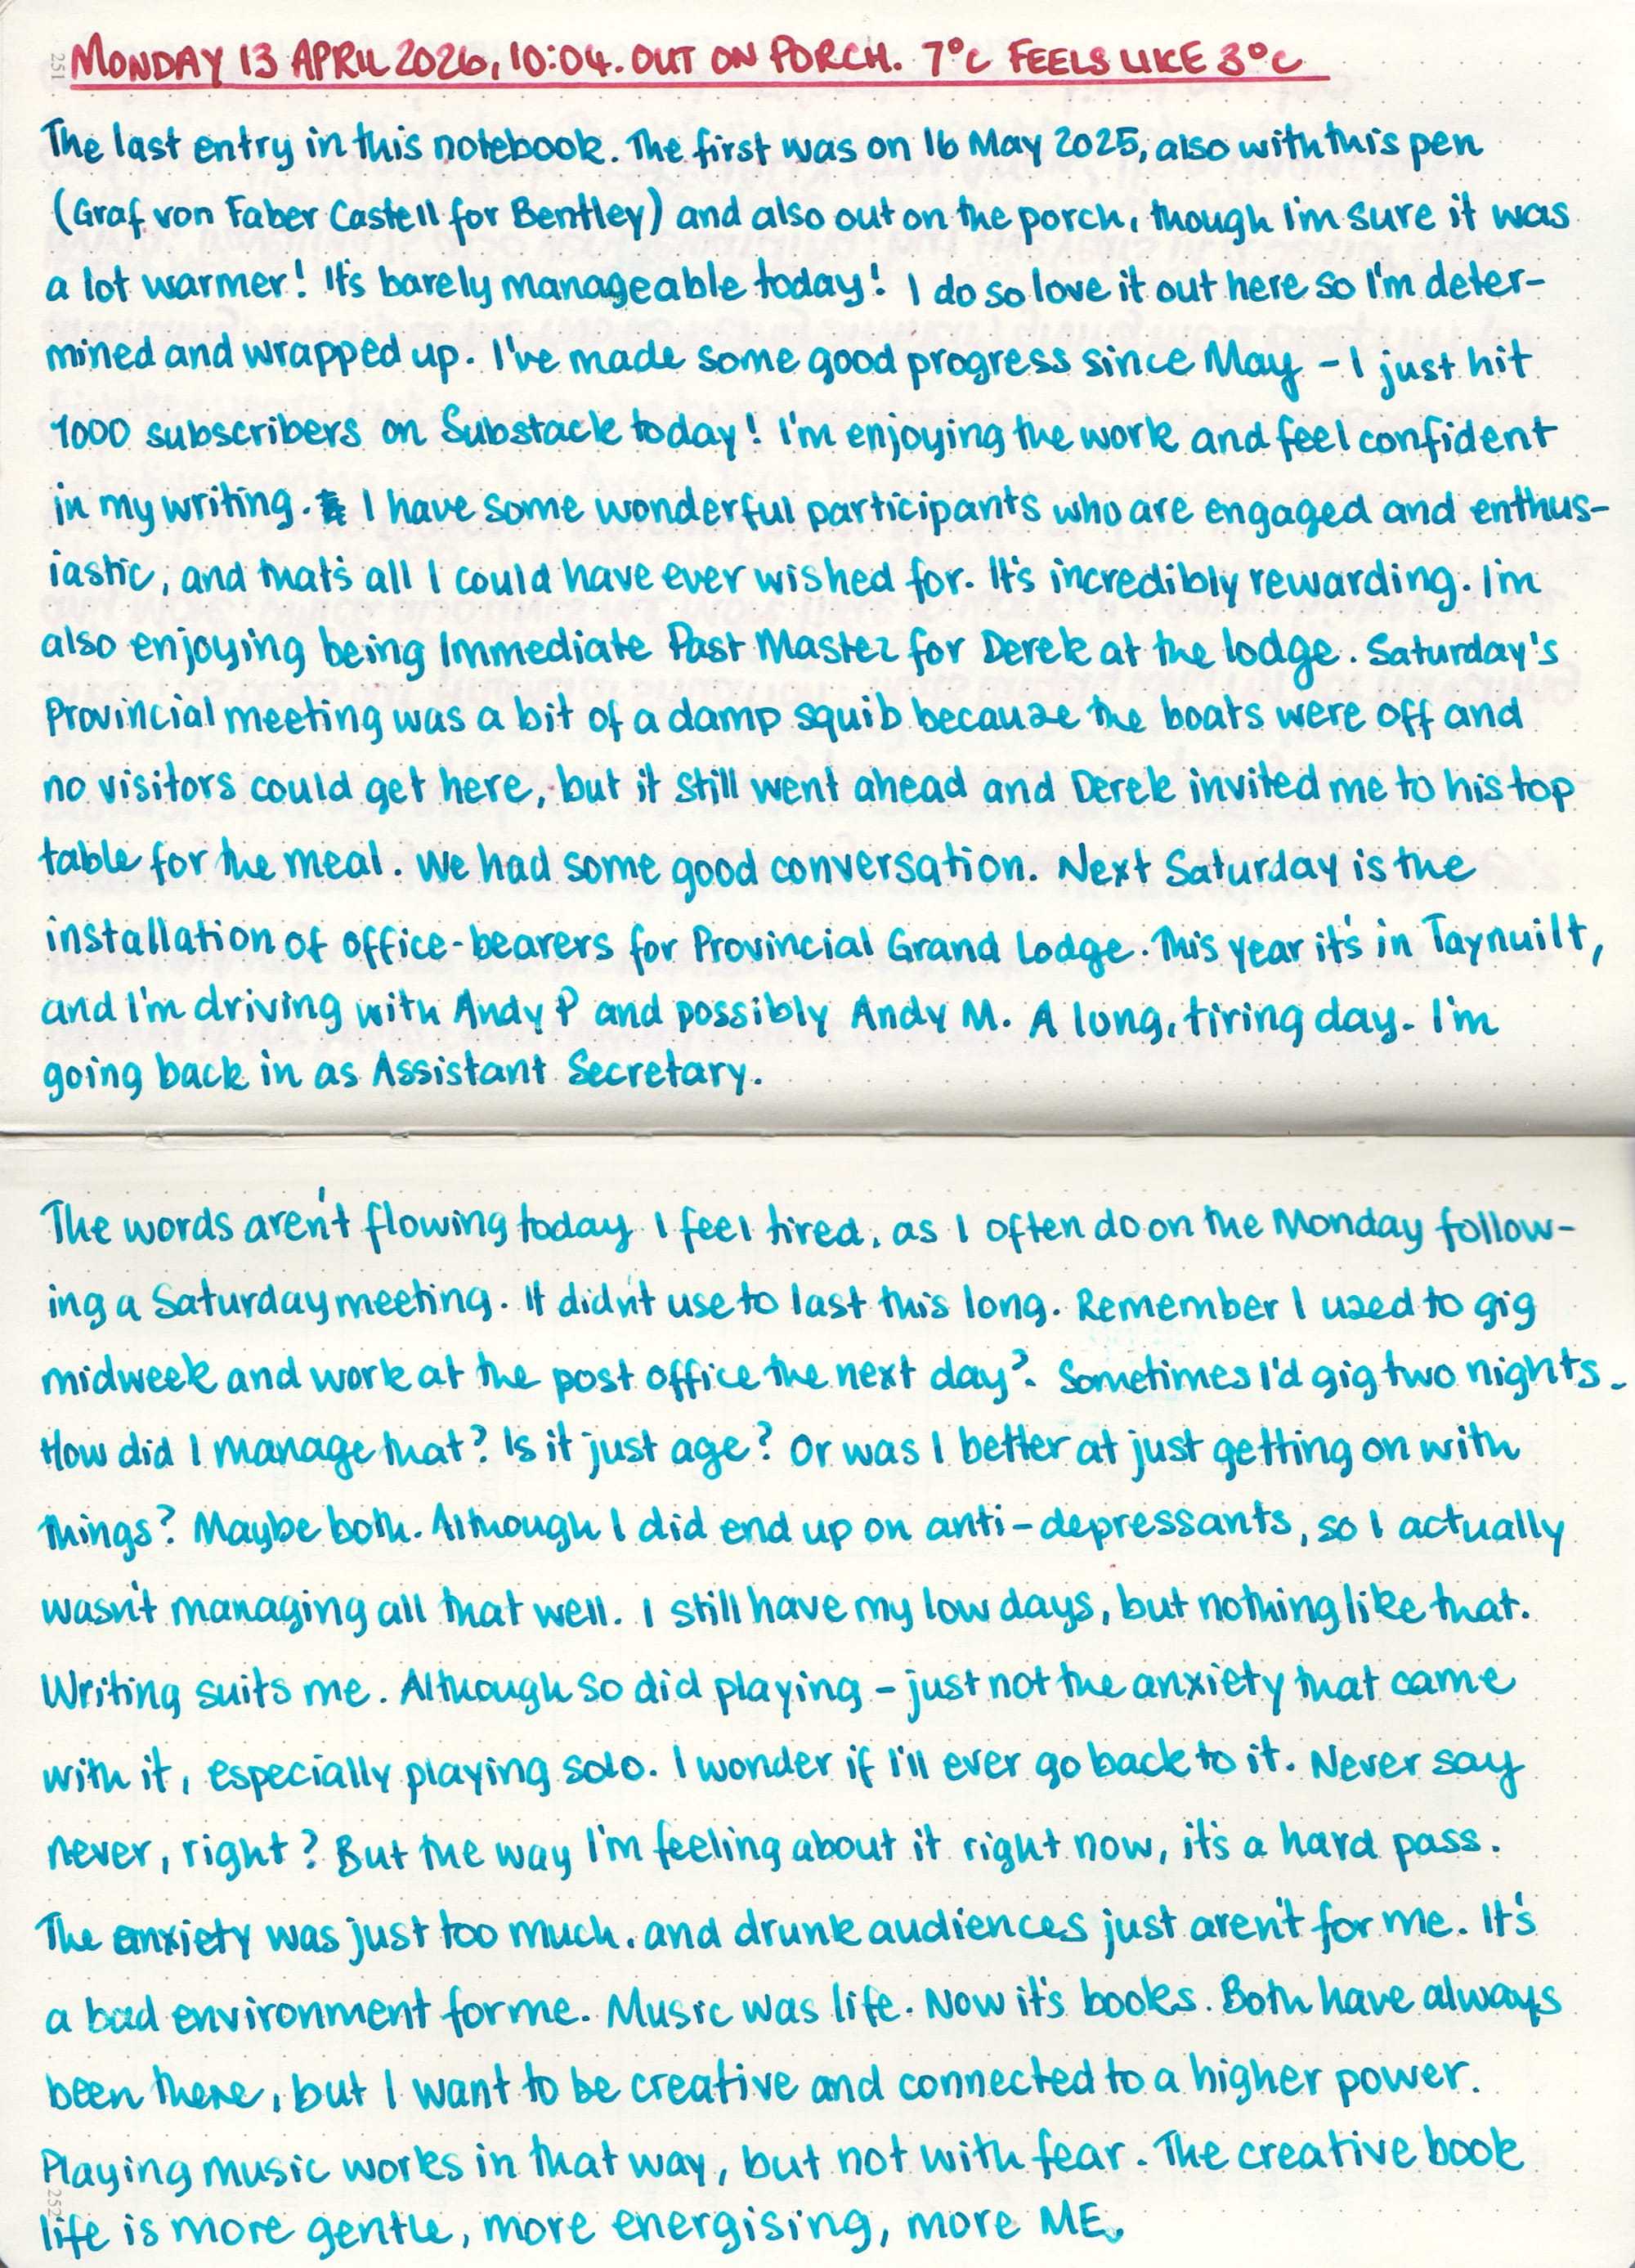 251
MONDAY 13 APRIL 2026, 10:04. OUT ON PORCH. 7°C FEELS LIKE 3°C
The last entry in this notebook. The first was on 16 May 2025, also with this pen
(Graf von Faber Castell for Bentley) and also out on the porch, though I'm sure it was
a lot warmer! It's barely manageable today! I do so love it out here so I'm deter-
mined and wrapped up. I've made some good progress since May - I just hit
1000 subscribers on Substack today! I'm enjoying the work and feel confident
in my writing. I have some wonderful participants who are engaged and enthus-
iastic, and that's all I could have ever wished for. It's incredibly rewarding. I'm
also enjoying being Immediate Past Master for Derek at the lodge. Saturday's
Provincial meeting was a bit of a damp squib because the boats were off and
no visitors could get here, but it still went ahead and Derek invited me to his top
table for the meal. We had some good conversation. Next Saturday is the
installation of office-bearers for Provincial Grand Lodge. This year it's in Taynuilt,
and I'm driving with Andy P and possibly Andy M. A long, tiring day. I'm
going back in as Assistant Secretary.
The words aren't flowing today I feel tired, as I often do on the Monday follow-
ing a Saturday meeting. It didn't use to last this long. Remember I used to gig
midweek and work at the post office the next day? Sometimes I'd gig two nights.
How did I manage that? Is it just age? Or was I better at just getting on with
things? Maybe both. Although I did end up on anti-depressants, so I actually
wasn't managing all that well. I still have my low days, but nothing like that.
Writing suits me. Although so did playing - just not the anxiety that came
with it, especially playing solo. I wonder if I'll ever go back to it. Never say
never, right? But the way I'm feeling about it right now, it's a hard pass.
The anxiety was just too much, and drunk audiences just aren't for me. It's
a bad environment for me. Music was life. Now it's books. Both have always
been there, but I want to be creative and connected to a higher power.
Playing music works in that way, but not with fear. The creative book
252
life is more gentle, more energising, more ME.